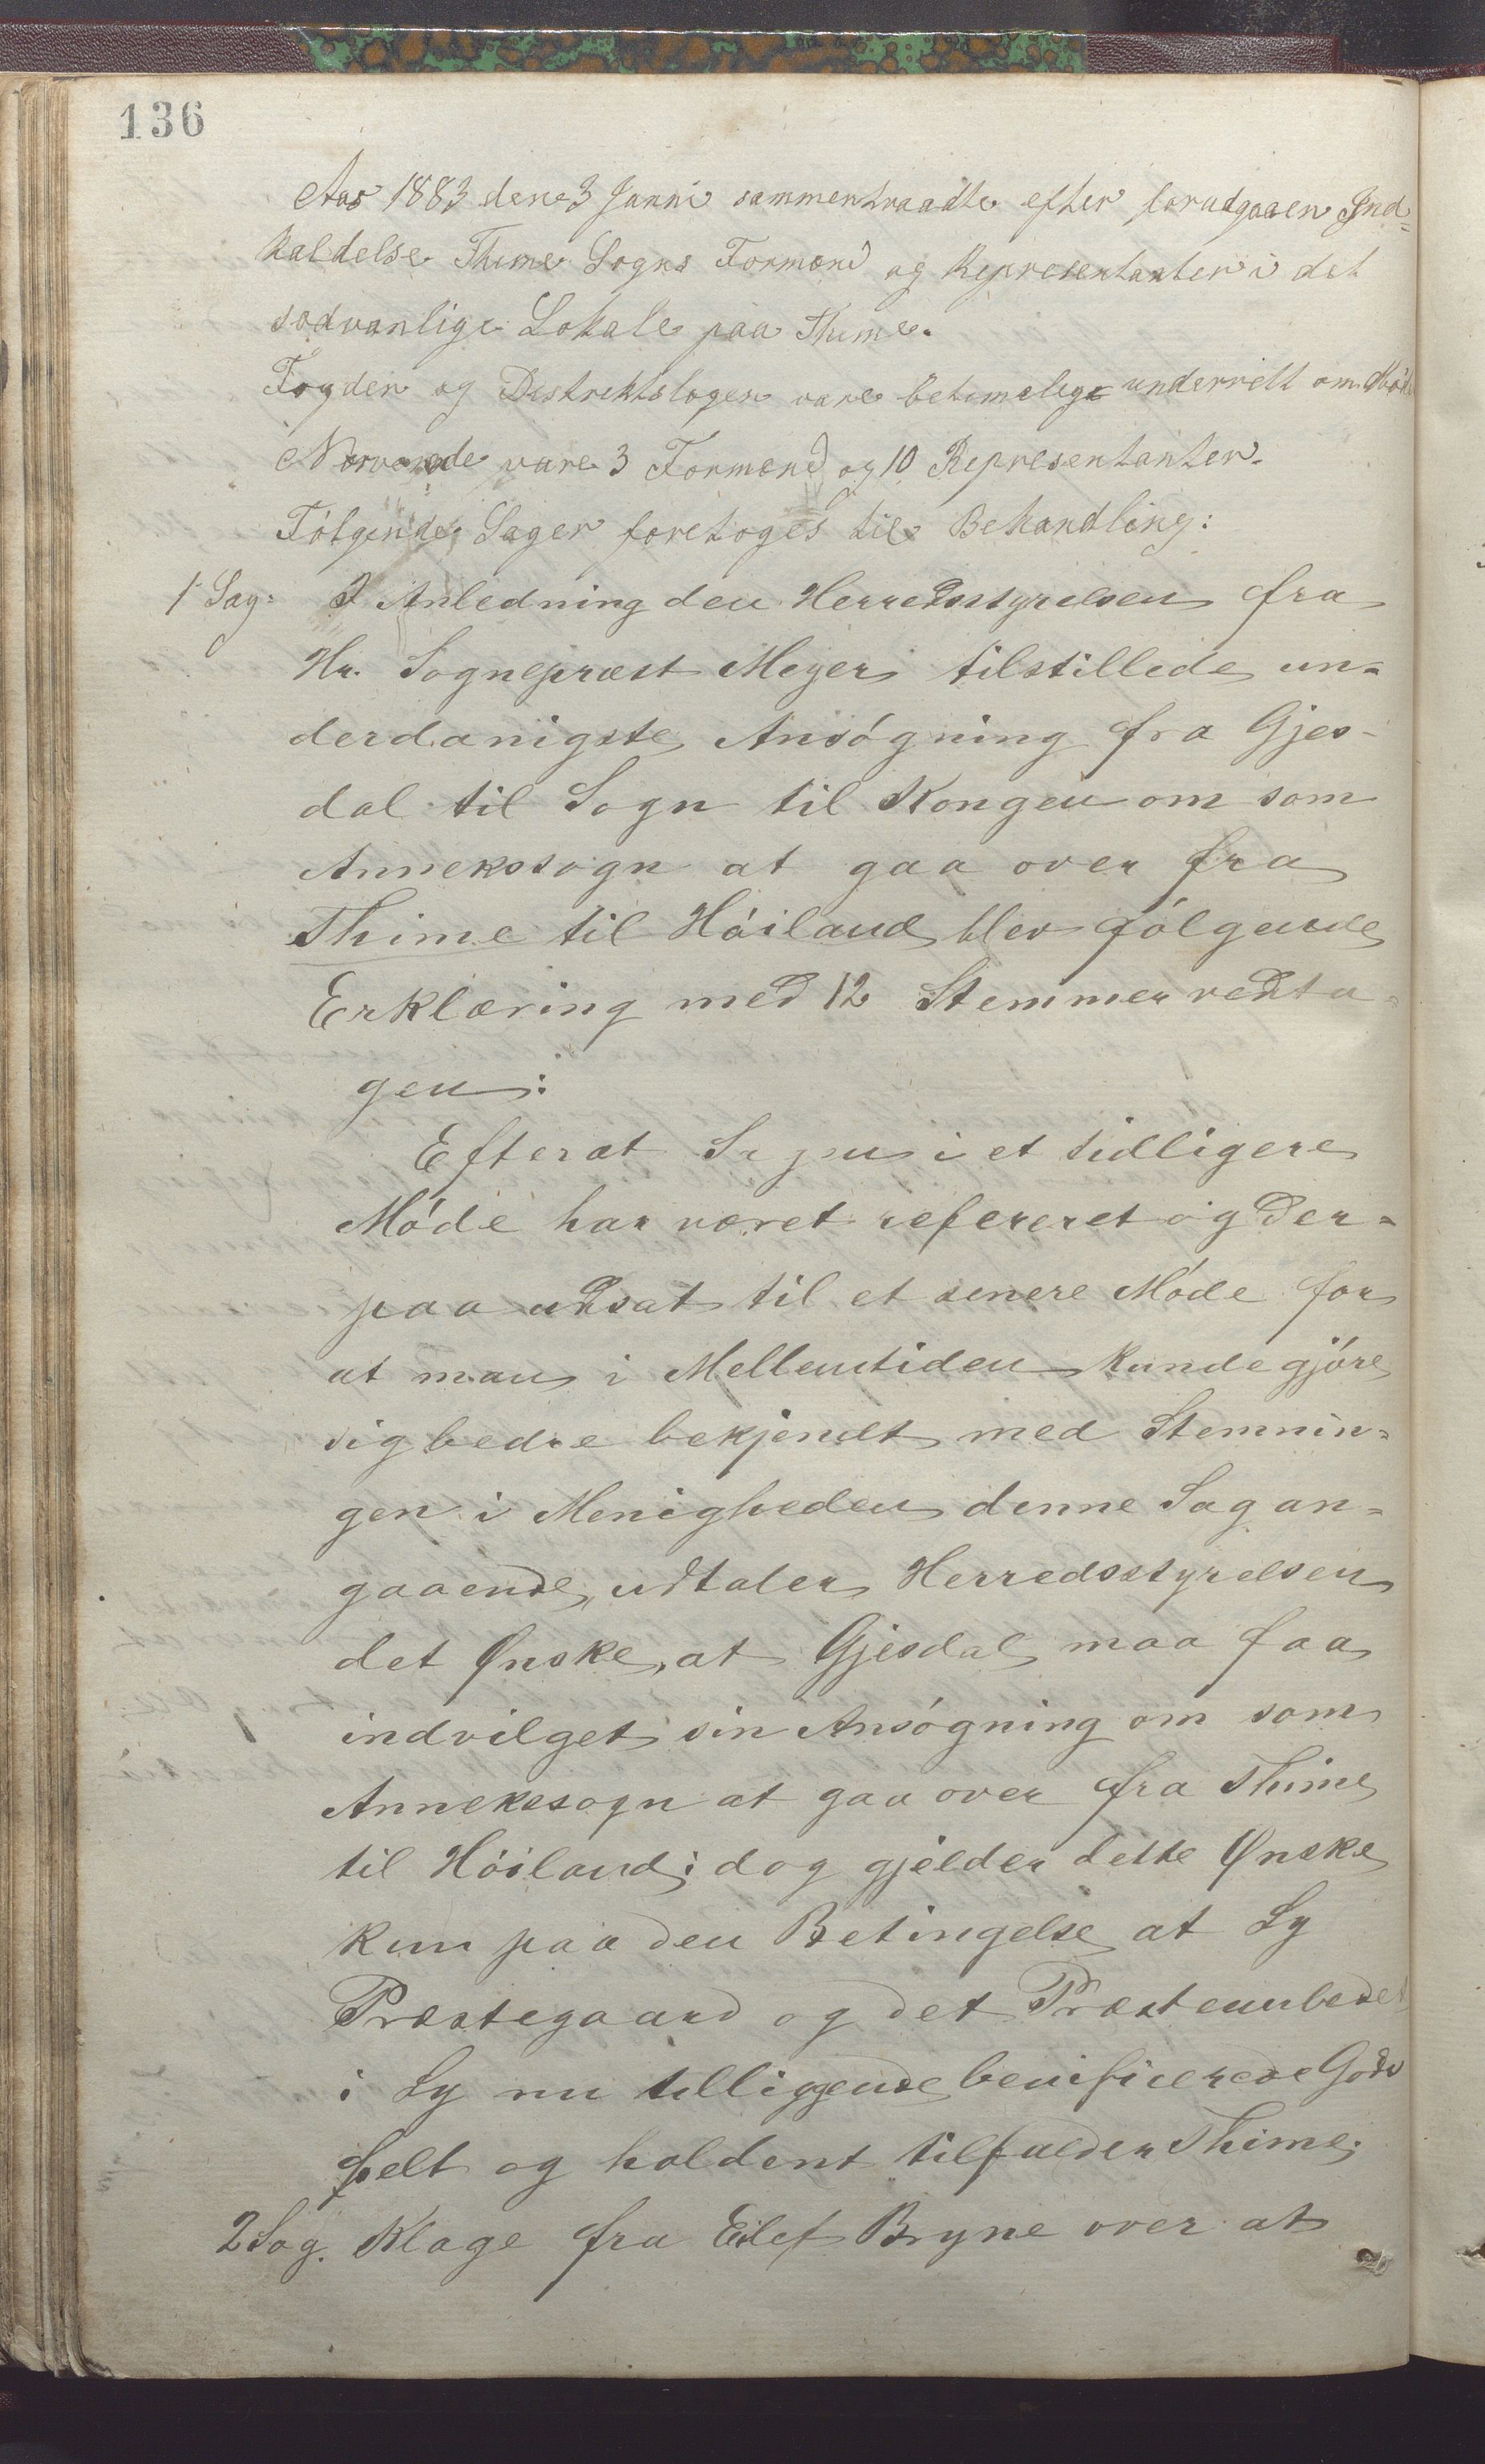 136
Aar 1883 den 3 Junni sammentraadte efter forudgaaen Ind=
kaldelse Thime Sogns Formænd og Representanter i det
sædvanlige Lokale paa Thime.
Fogden og Destriktslogen vare betimelige underrett om Møde
Nærværede vare 3 Formænd og 10 Representanter.
Følgende Sager foretoges til Behandling:
1 Sag: I Anledning den Herredsstyrelsen fra
Hr. Sognepræst Meyer tilstillede un=
derdanigste Ansøgning fra Gjes-
dal til Sogn til Kongen om som
Annekssogn at gaa over fra
Thime til Høiland blev følgende
Erklæring med 12 Stemmer vedta=
gen:
Efterat Sagen i et tidligere
Møde har været refereret og der=
paa udsat til et senere Møde for
at man i Mellemtiden kunde gjøre
sig bedre bekjendt med Stemnin=
gen i Menigheden denne Sag an=
gaaende, udtaler Herredsstyrelsen
det Ønske, at Gjesdal maa faa
indvilget sin Ansøgning om som
Annekssogn at gaa over fra Thime
til Høiland; dog gjelder dette Ønske
kun paa den Betingelse at Ly
Præstegaard og det Præsteembedet
i Ly nu tilliggende benificerede Gods
helt og holdent tilfalder Thime;
2 Sag. Klage fra Eilef Bryne over at